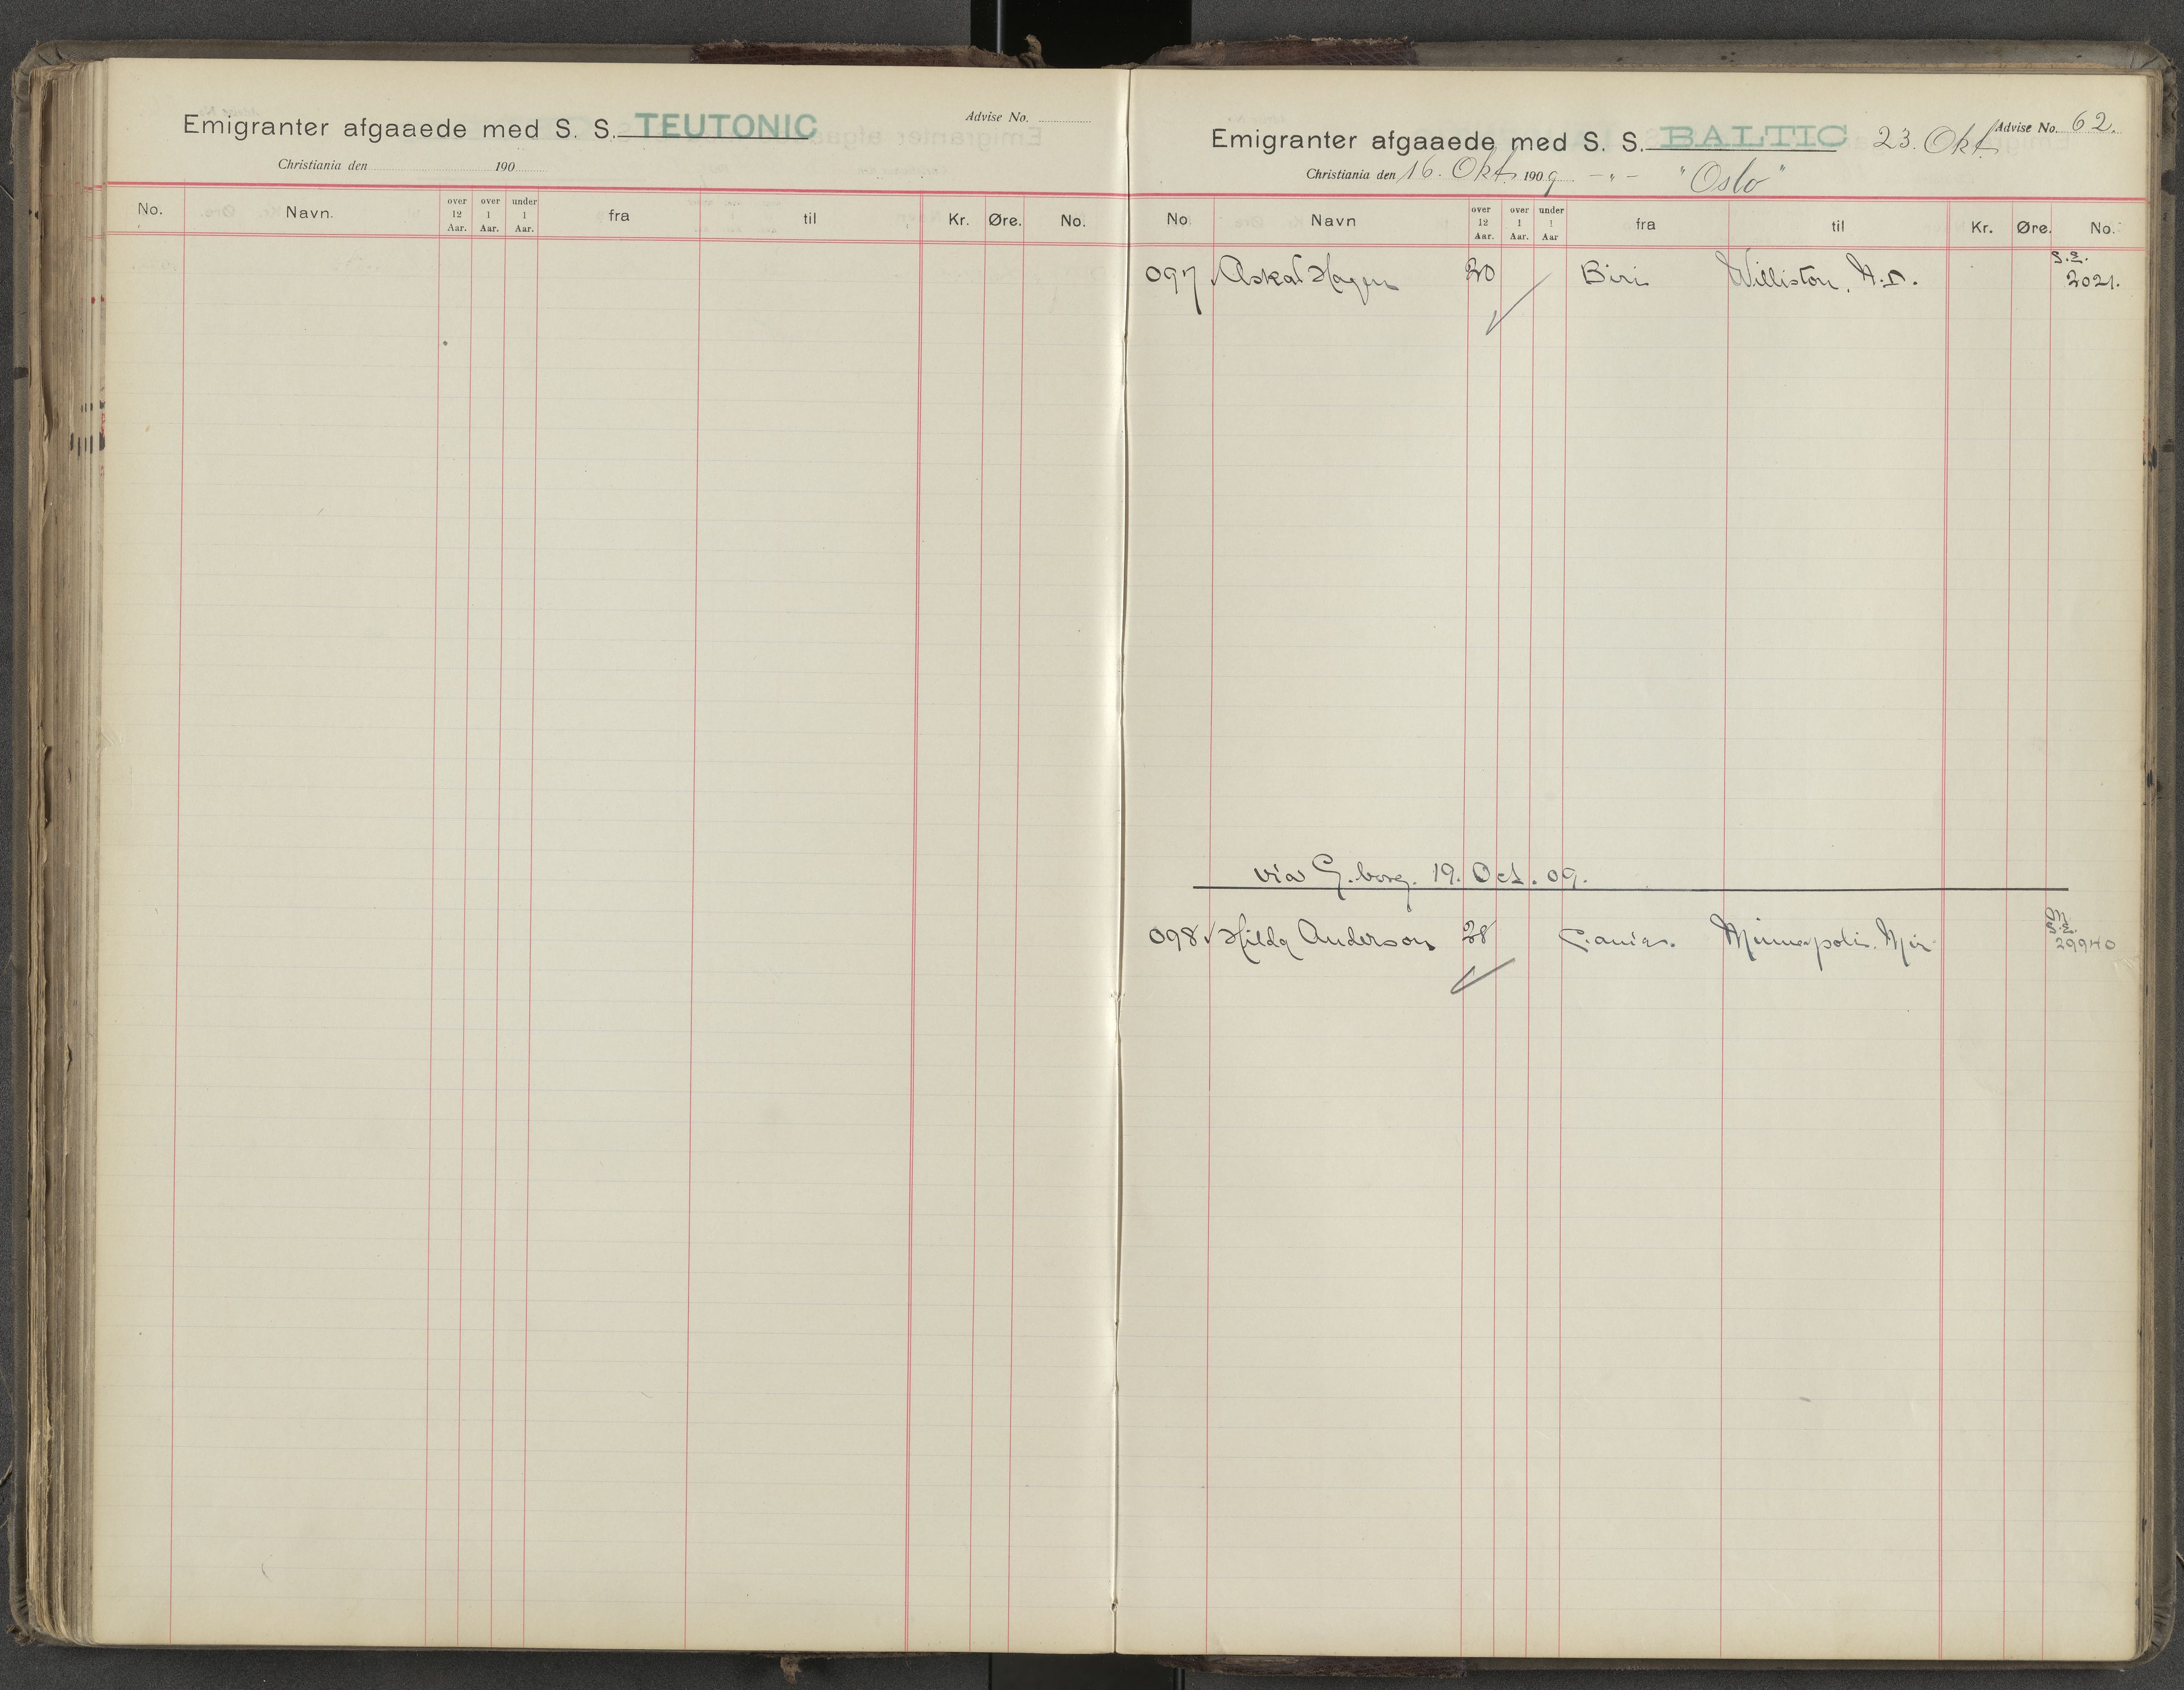 Emigranter afgaaede med S. S. TEUTONIC
Advise No.
Christiania den 190
No. Navn. over 12 Aar. over 1 Aar. under 1 Aar. fra til Kr. Øre. No.
Emigranter afgaaede med S. S. BALTIC 23. Okt.
Advise No. 62.
Christiania den 16. Okt. 1909 — " — "Oslo"
No. Navn over 12 Aar. over 1 Aar. under 1 Aar fra til Kr. Øre. No.
097 Hagen 20 Biri Williston, N.D. S.E. 2021.
via G.borg. 19. Oct. 09.
098 Hilda Anderson 28 Minneapolis. S.E. 29940